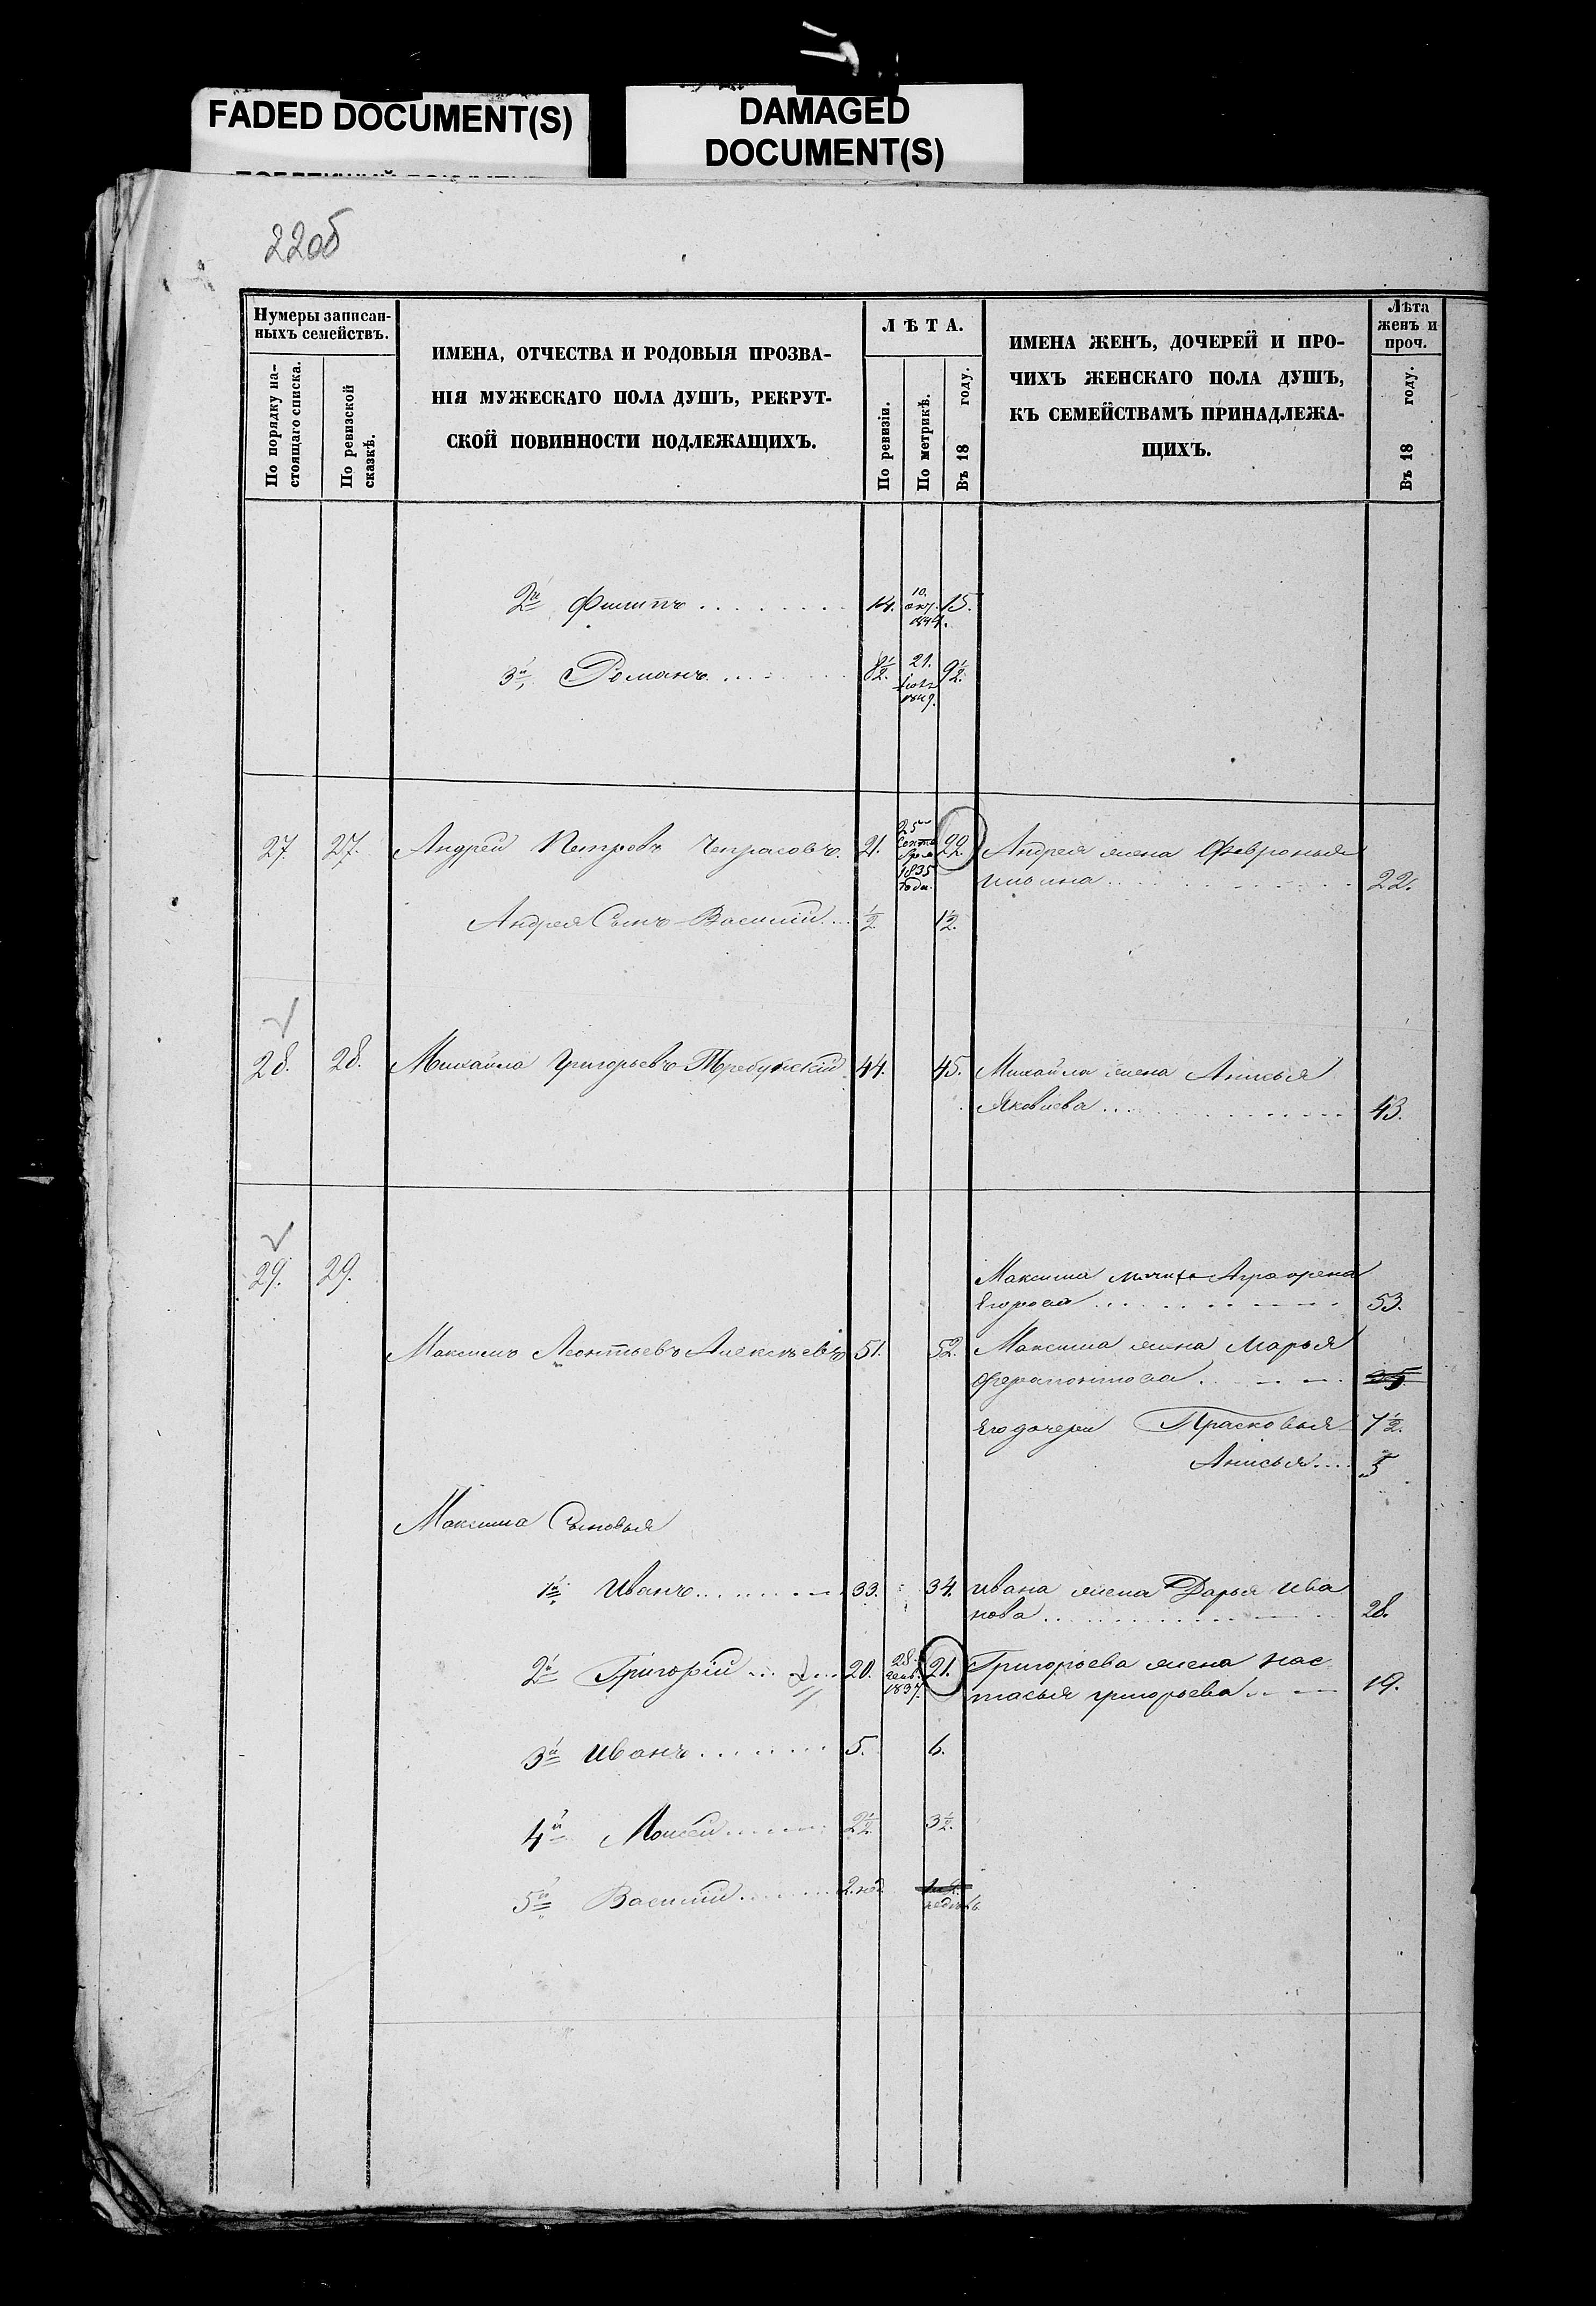 FADED DOCUMENT(S)
DAMAGED
DOCUMENT(S)
22об
Нумеры записан-
ныхъ семействъ.
По порядку на-
стоящаго списка.
По ревизской
сказкѣ.
ИМЕНА, ОТЧЕСТВА И РОДОВЫЯ ПРОЗВА-
НІЯ МУЖЕСКАГО ПОЛА ДУШЪ, РЕКРУТ-
СКОЙ ПОВИННОСТИ ПОДЛЕЖАЩИХЪ.
ЛѢТА.
По ревизіи.
По метрикѣ.
Въ 18 году.
ИМЕНА ЖЕНЪ, ДОЧЕРЕЙ И ПРО-
ЧИХЪ ЖЕНСКАГО ПОЛА ДУШЪ,
КЪ СЕМЕЙСТВАМЪ ПРИНАДЛЕЖА-
ЩИХЪ.
Лѣта
женъ и
проч.
Въ 18 году.
2й Филипъ 14. 10. 1844. 15.
3й Романъ 8½. 21. 9½.
27. 27. Андрей Петровъ Чепрасовъ. 21. 25 Сентября 1835 года. 22. Андрея жена Февронья
22.
Андрея Сынъ Василій ½ 1½.
28. 28. Михайла Григорьевъ 44. 45. Михайла жена Анисья
Яковлева 43.
29. 29. Максима мачиха Аграфена
Егорова 53.
Максимъ Леонтьевъ Алексѣевъ 51. 52. Максима жена Марья
Ферапонтова
Его дочери Прасковья 7½.
Анисья 5
Максима Сыновья
1й Иванъ 33. 34. Ивана жена Дарья Ива
нова 28.
2й Григорій 20. 28. генв. 1837. 21. Григорьева жена Нас
тасья Григорьева 19.
3й Иванъ 5. 6.
4й Моисей 2½. 3½.
5й Василій 2. нед.